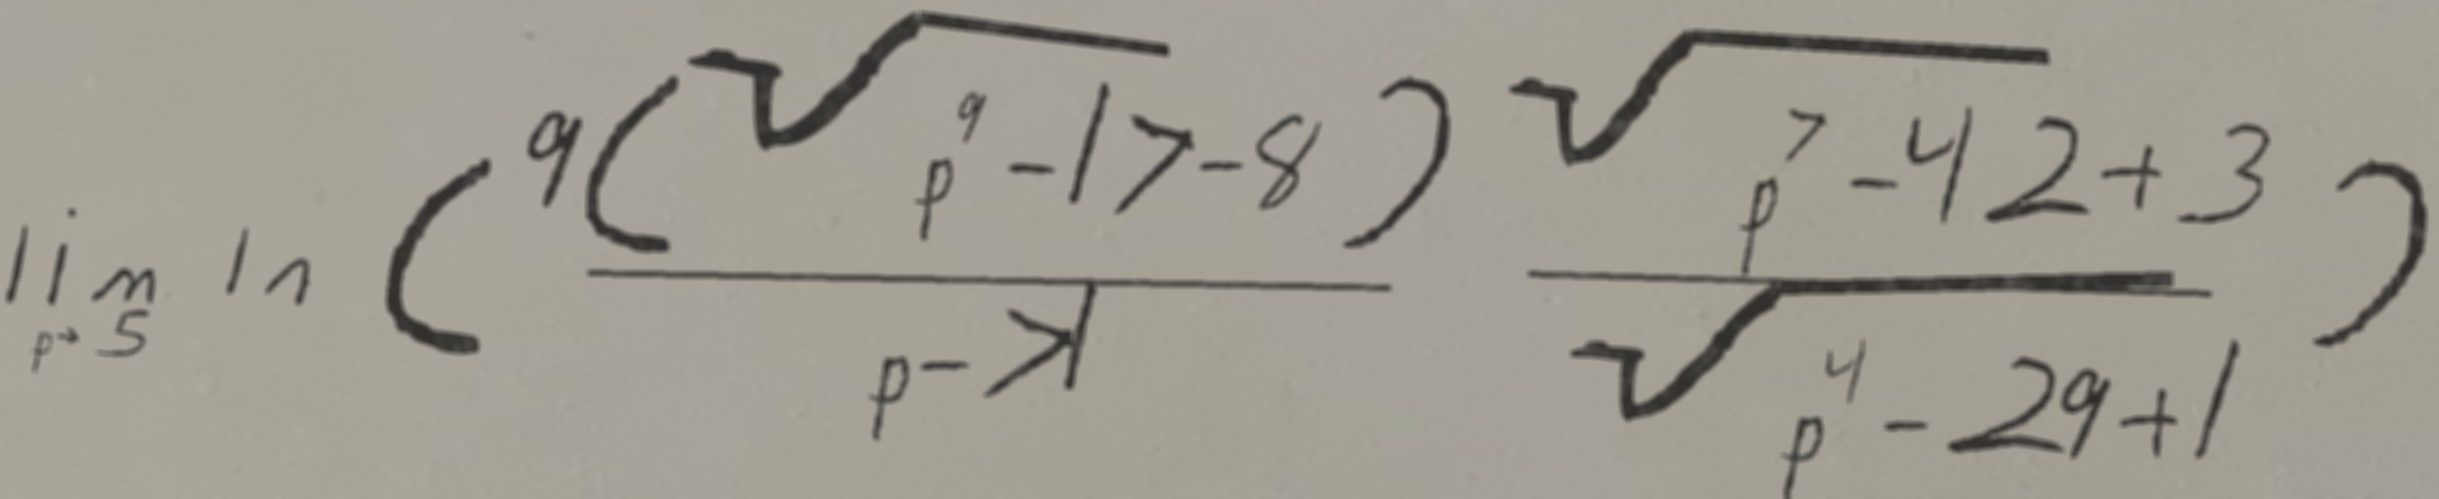 lim_{p→5} ln ( 9(√(p^9-17)-8) / (p-71) · √(p^7-42+3) / √(p^4-29+1) )